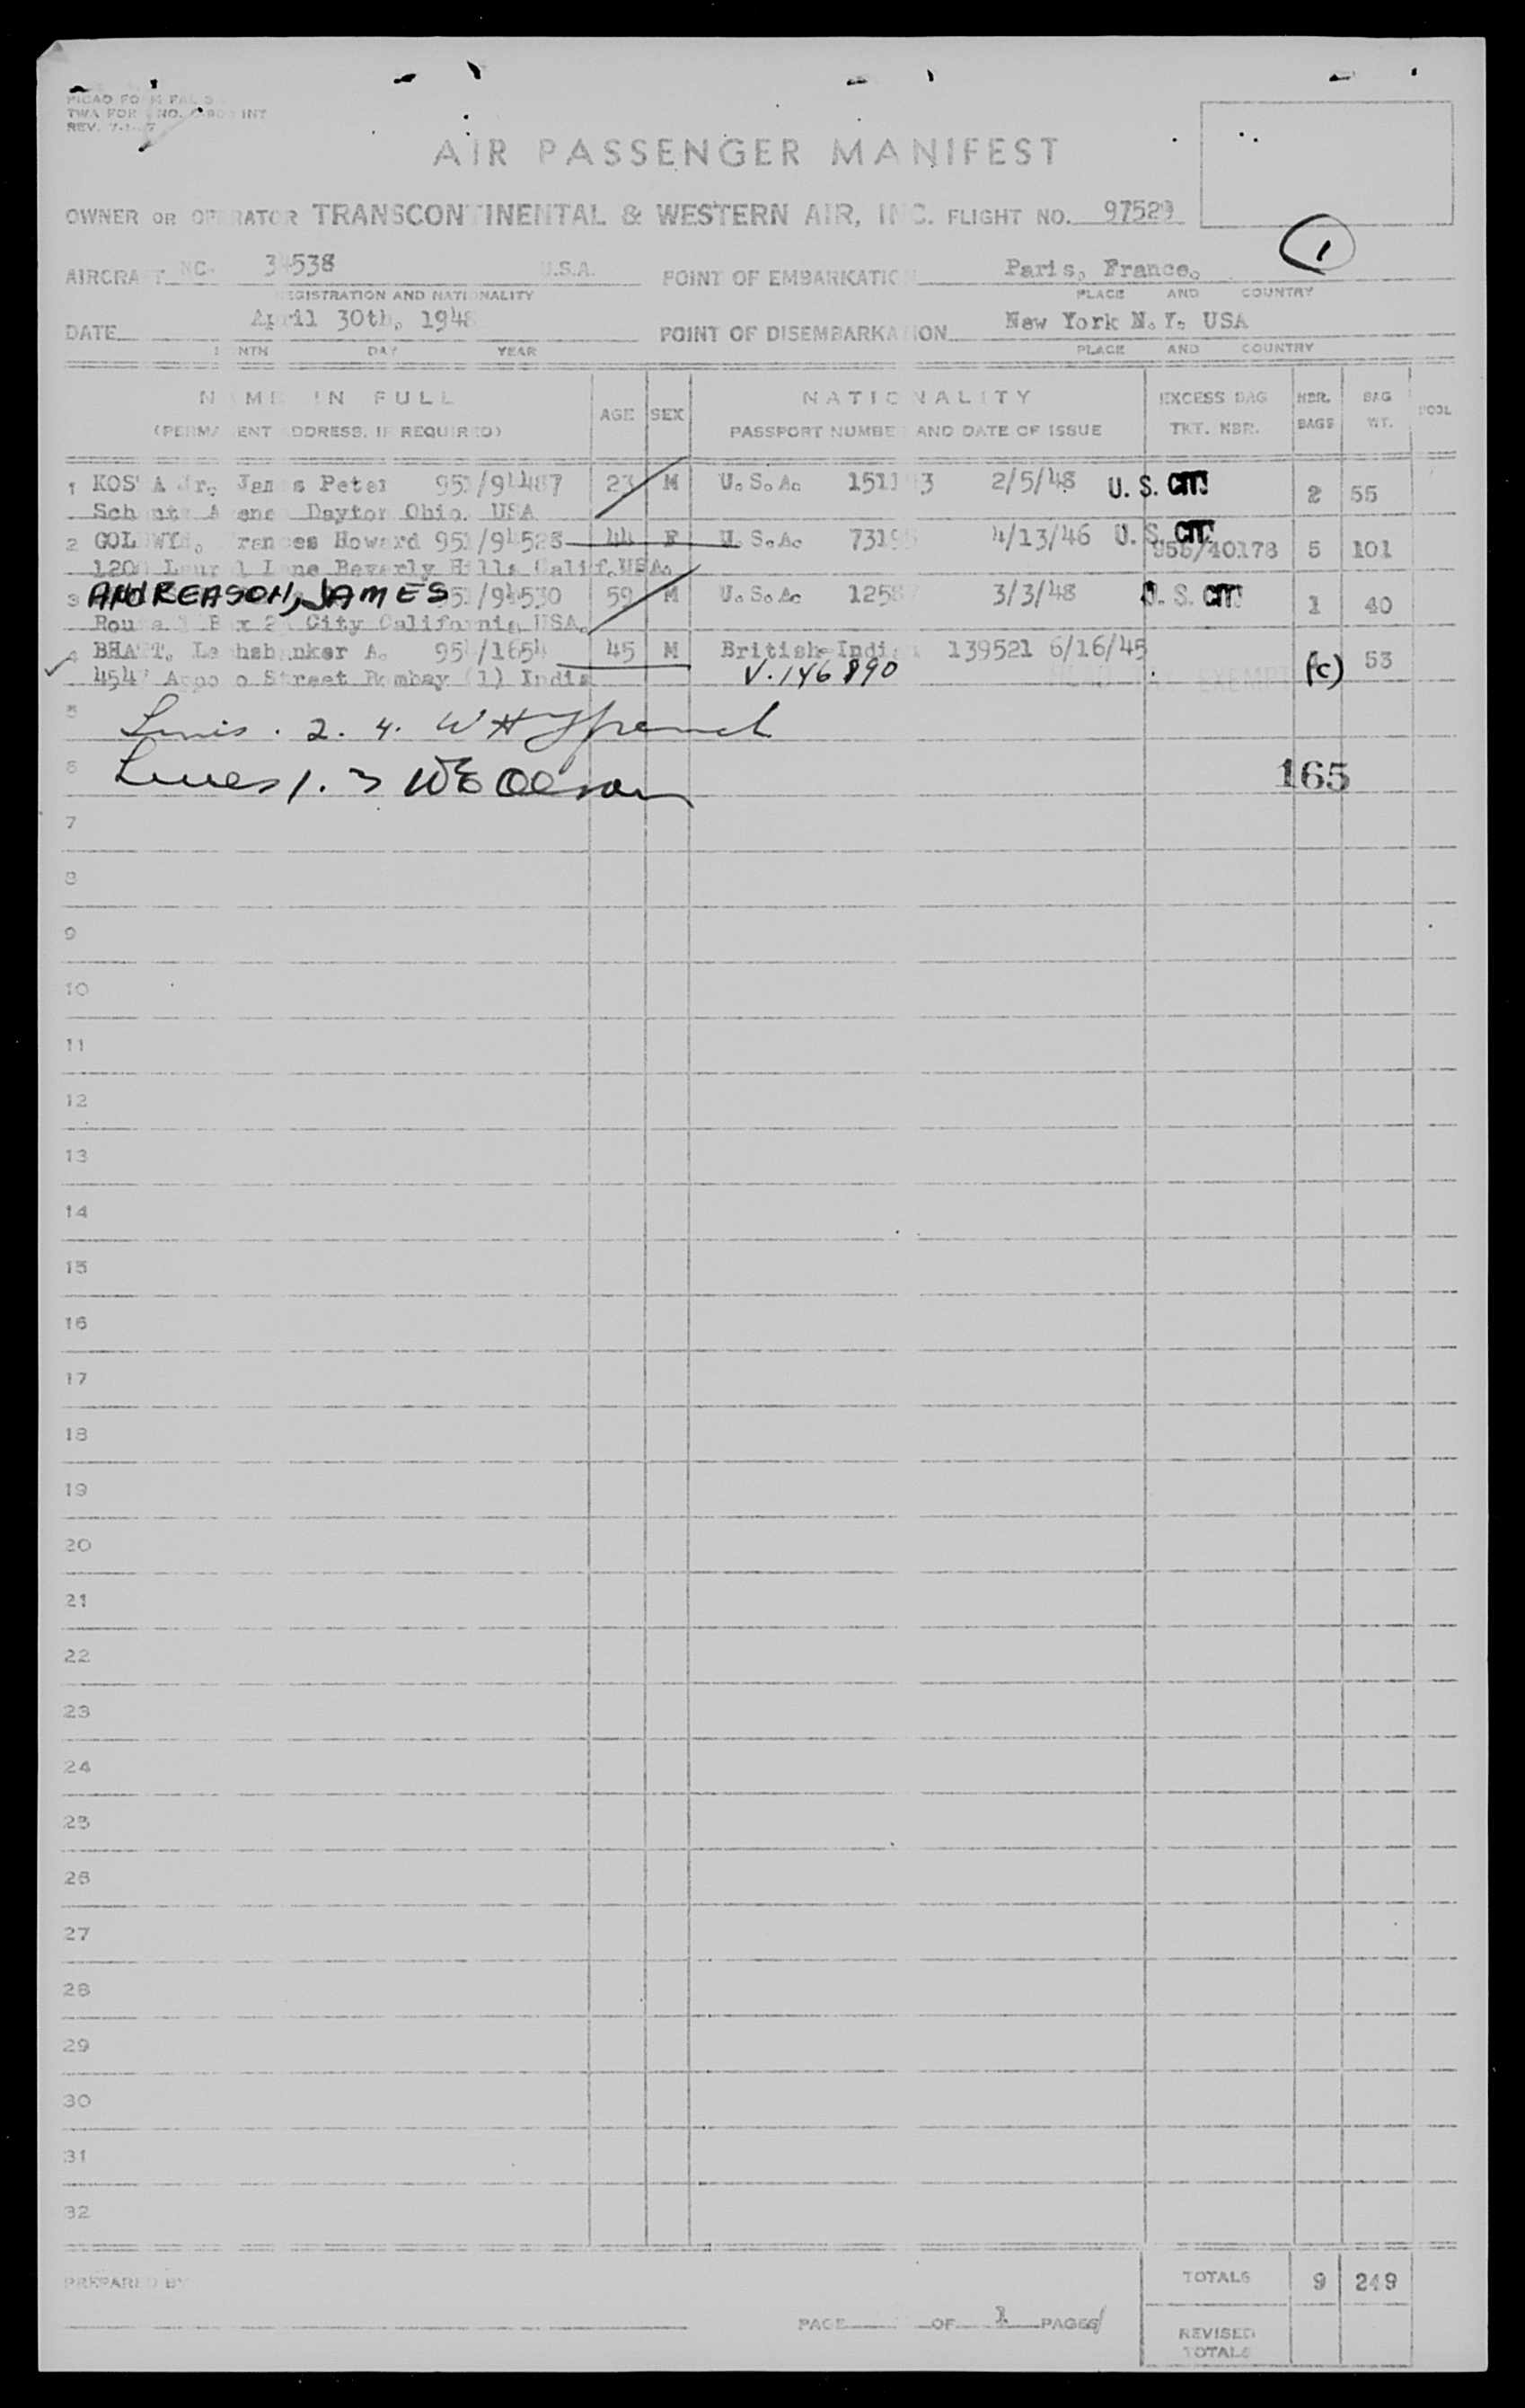 PICAO FORM
TWA FORM NO. INT
REV. 7-1-47
AIR PASSENGER MANIFEST
OWNER OR OPERATOR TRANSCONTINENTAL & WESTERN AIR, INC. FLIGHT NO. 97529
1
AIRCRAFT NC- 34538 U.S.A. POINT OF EMBARKATION Paris, France.
REGISTRATION AND NATIONALITY PLACE AND COUNTRY
DATE April 30th, 1948 POINT OF DISEMBARKATION New York N.Y. USA
MONTH DAY YEAR PLACE AND COUNTRY
NAME IN FULL AGE SEX NATIONALITY EXCESS BAG NBR. BAG POOL
(PERMANENT ADDRESS, IF REQUIRED) PASSPORT NUMBER AND DATE OF ISSUE TKT. NBR. BAGS WT.
1 Jr, James Peter 23 M U.S.A. 2/5/48 U. S. CIT 2 55
Dayton Ohio. USA
2 GOLDWYN, Frances Howard 44 F U.S.A. 4/13/46 U. S. CIT 956/40178 5 101
1200 Laurel Lane Beverly Hills Calif. USA.
3 ANDREASON, JAMES 59 M U.S.A. 3/3/48 U. S. CIT 1 40
City California USA.
4 BHATT, A. 45 M British-Indian 139521 6/16/45 53
Street Bombay (1) India V.146890 (c)
5 2. 4.
6 Lines 1. 3 165
7
8
9
10
11
12
13
14
15
16
17
18
19
20
21
22
23
24
25
26
27
28
29
30
31
32
PREPARED BY TOTALS 9 249
PAGE OF 1 PAGES
REVISED
TOTALS